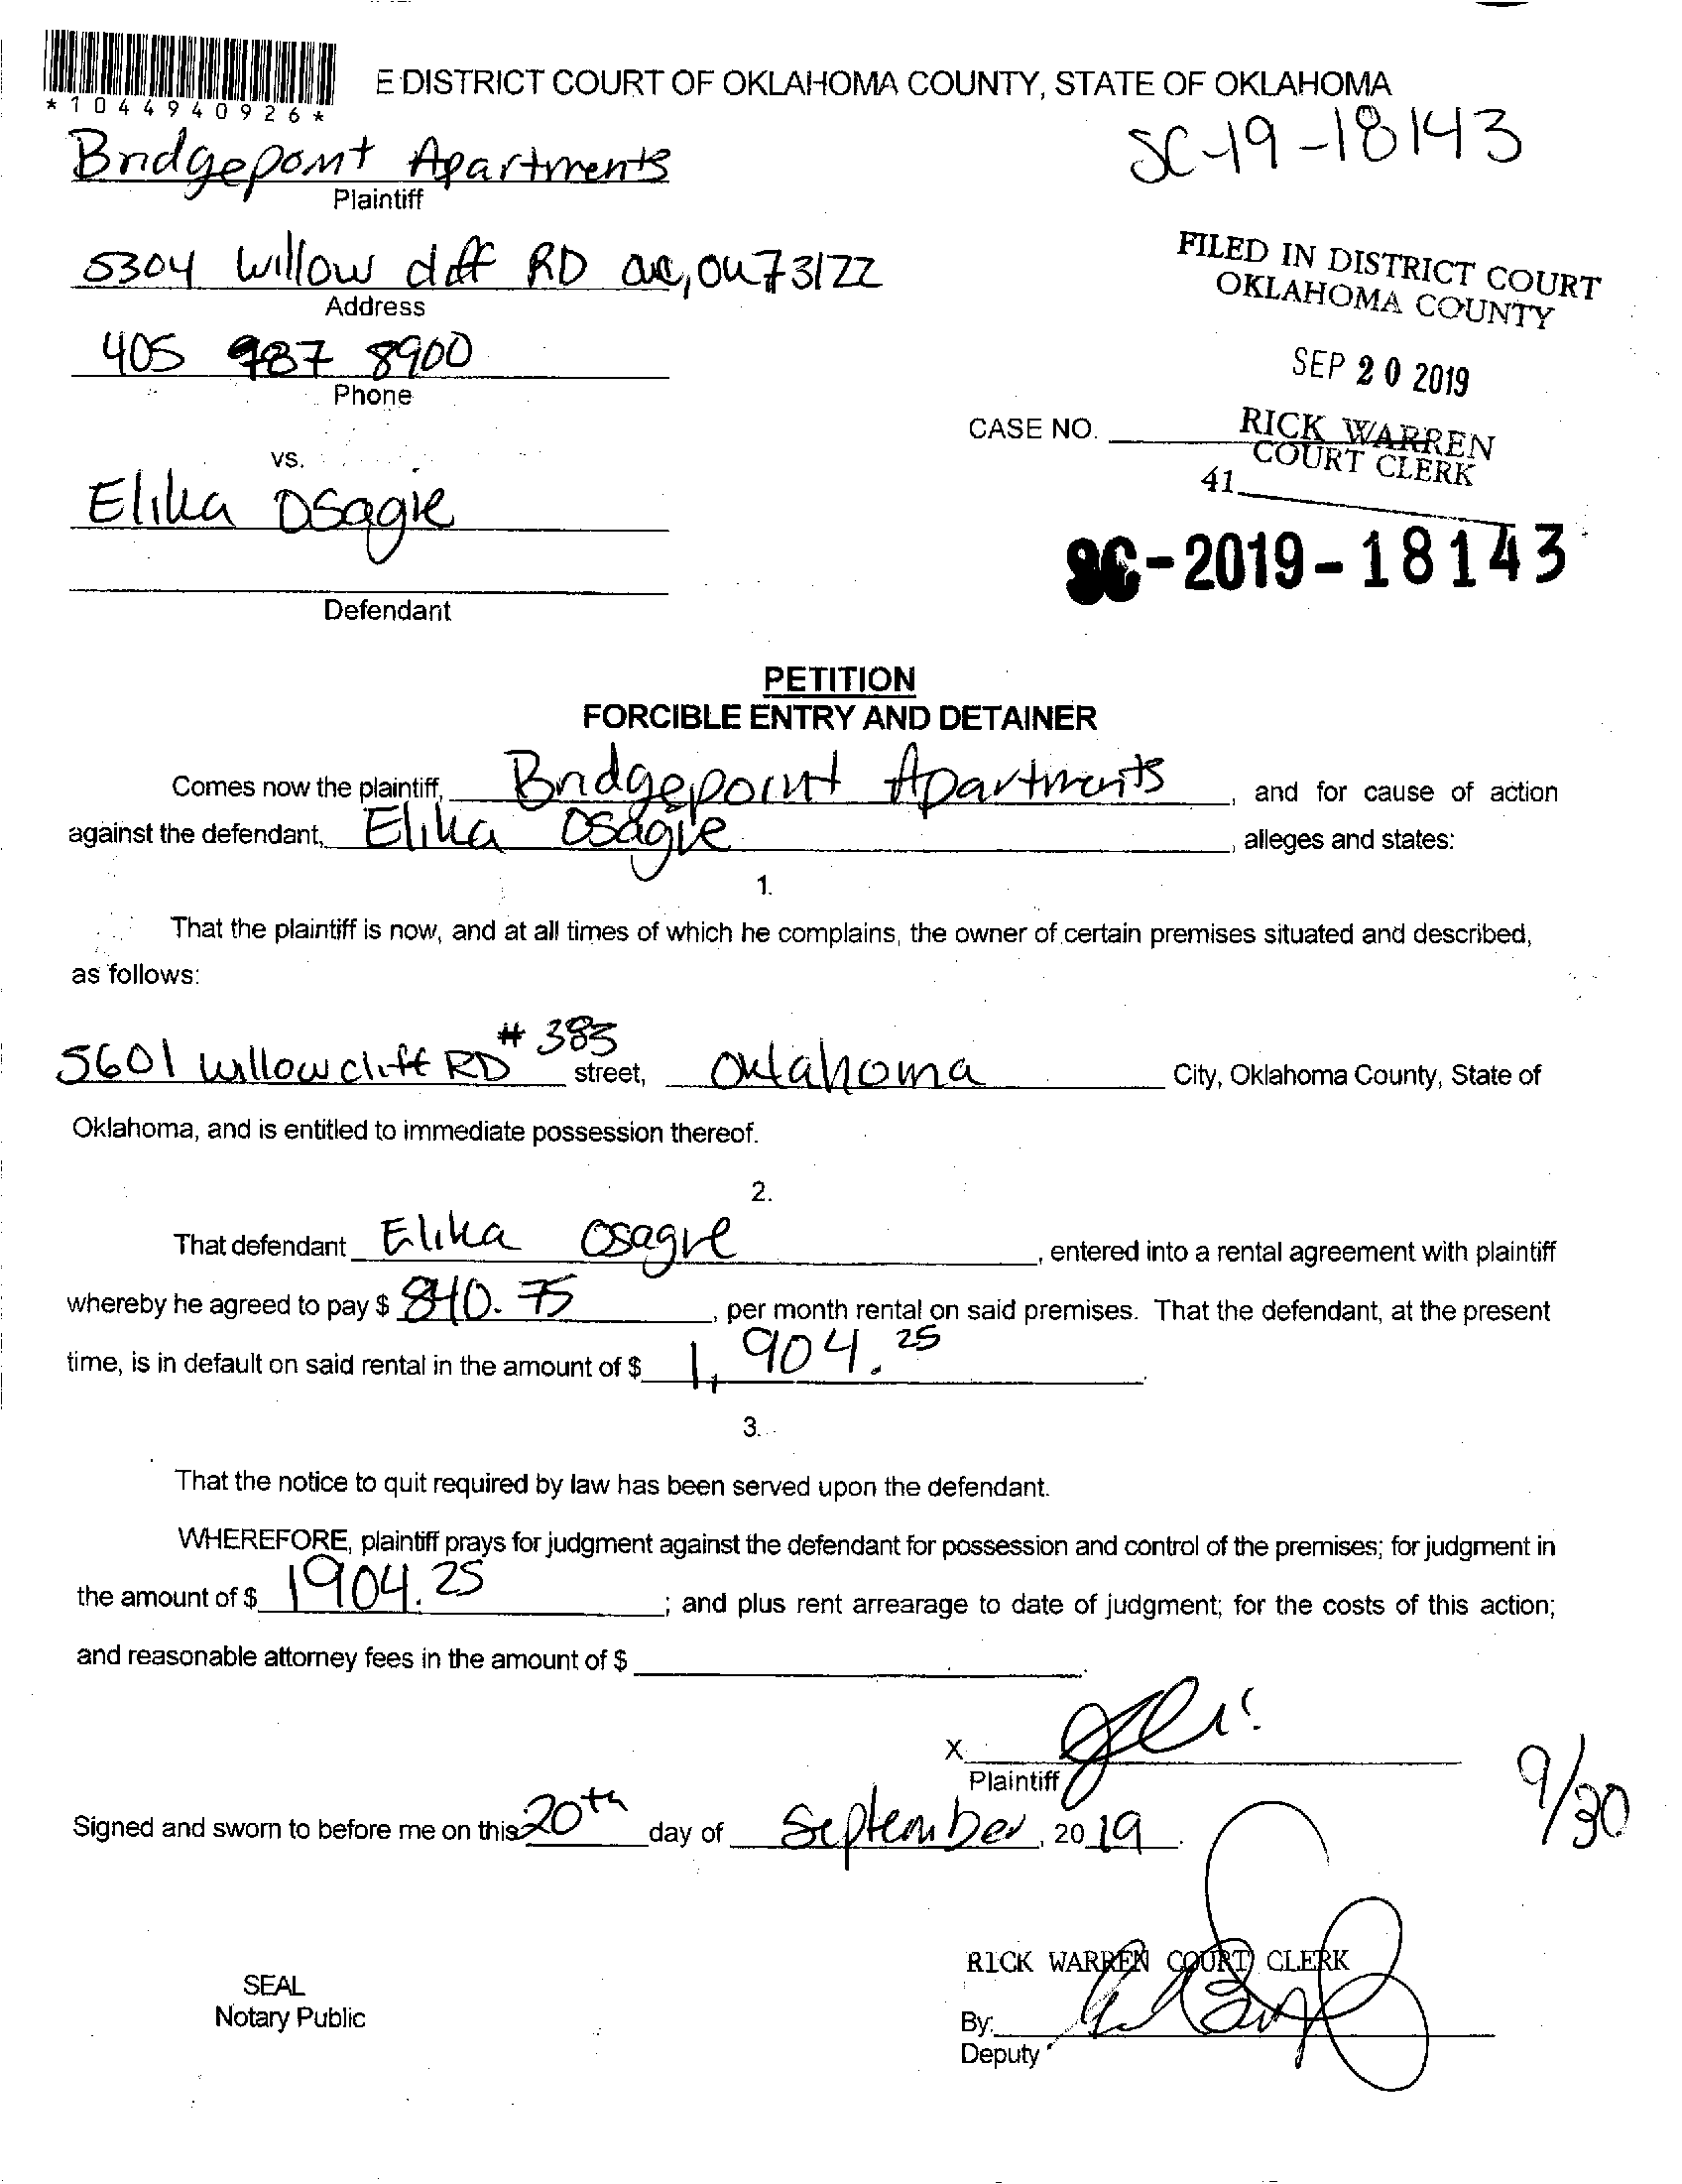 *1044940926*
E DISTRICT COURT OF OKLAHOMA COUNTY, STATE OF OKLAHOMA
SC-19-18143
Bridgepoint Apartments
Plaintiff
5304 Willow cliff RD OKC, OK 73122
Address
FILED IN DISTRICT COURT
OKLAHOMA COUNTY
405 987 8900
Phone
SEP 20 2019
CASE NO.
RICK WARREN
COURT CLERK
41
vs.
Elika Osagie
SC-2019-18143
Defendant
PETITION
FORCIBLE ENTRY AND DETAINER
Comes now the plaintiff, Bridgepoint Apartments, and for cause of action
against the defendant, Elika Osagie, alleges and states:
1.
That the plaintiff is now, and at all times of which he complains, the owner of certain premises situated and described,
as follows:
5601 Willowcliff RD # 383 street, Oklahoma City, Oklahoma County, State of
Oklahoma, and is entitled to immediate possession thereof.
2.
That defendant Elika Osagie, entered into a rental agreement with plaintiff
whereby he agreed to pay $ 840.75, per month rental on said premises. That the defendant, at the present
time, is in default on said rental in the amount of $ 1,904.25.
3.
That the notice to quit required by law has been served upon the defendant.
WHEREFORE, plaintiff prays for judgment against the defendant for possession and control of the premises; for judgment in
the amount of $ 1904.25; and plus rent arrearage to date of judgment; for the costs of this action;
and reasonable attorney fees in the amount of $
X
Plaintiff
9/30
Signed and sworn to before me on this 20th day of September, 2019.
RICK WARREN COURT CLERK
SEAL
Notary Public
By:
Deputy